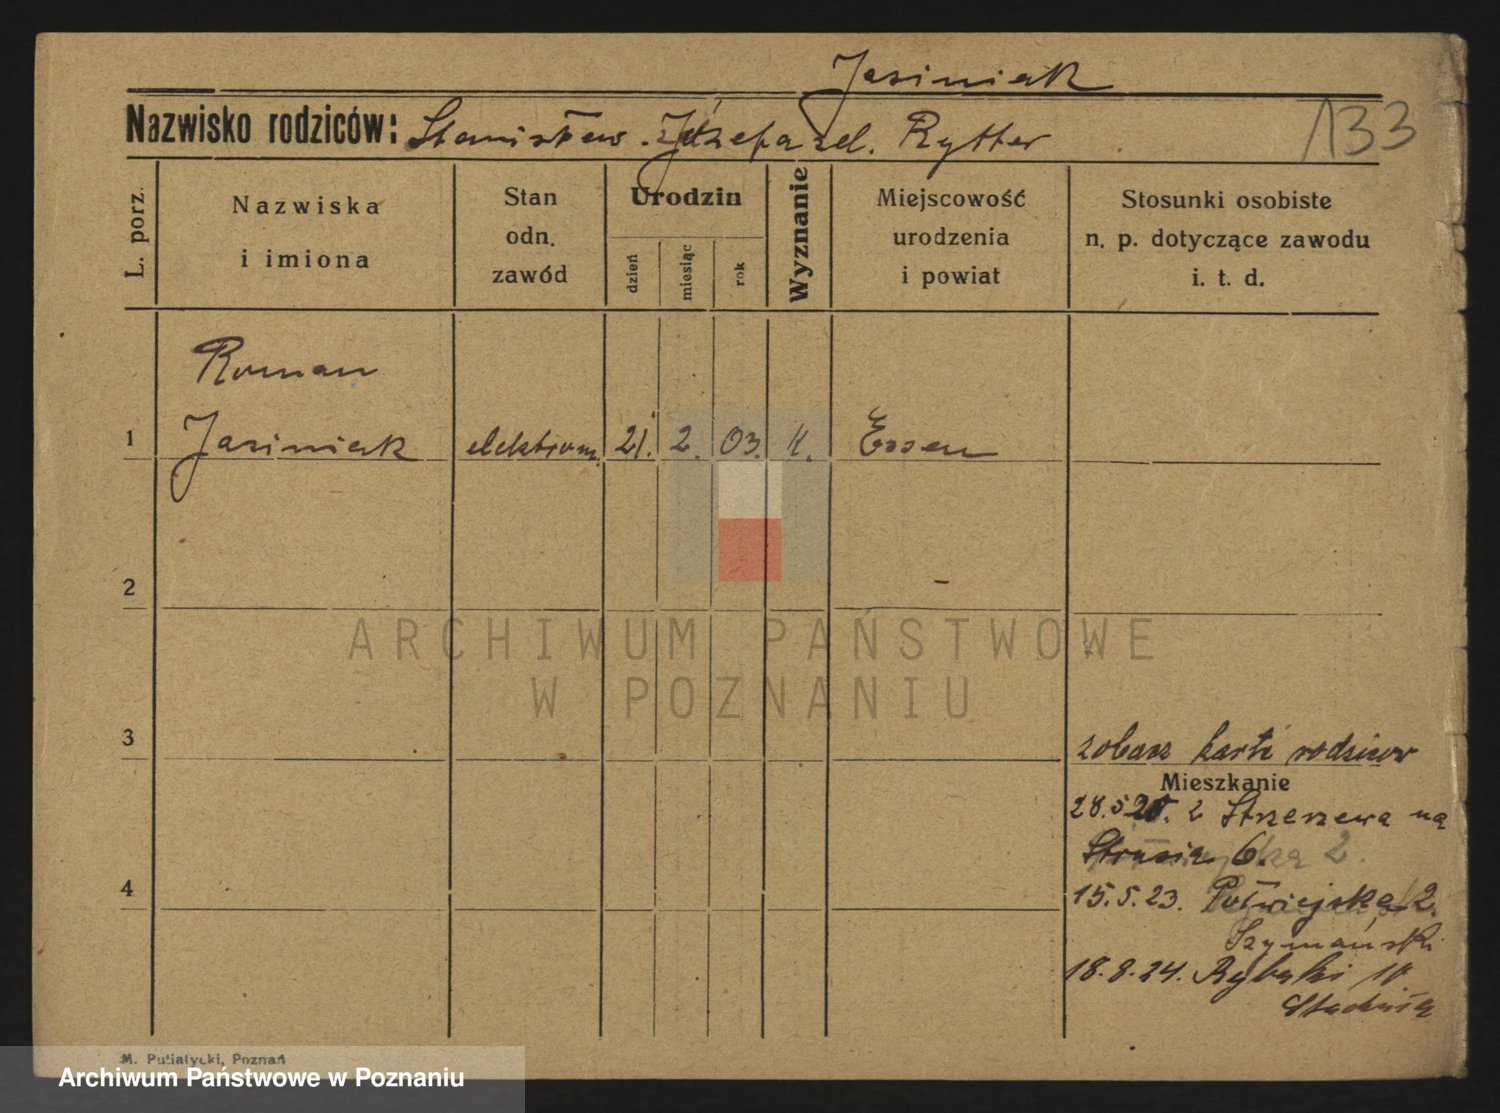 Jasiniak
Nazwisko rodziców: Stanisław . Józefa zd. Rytter
133
L. porz.
Nazwiska
i imiona
Stan
odn.
zawód
Urodzin
dzień
miesiąc
rok
Wyznanie
Miejscowość
urodzenia
i powiat
Stosunki osobiste
n. p. dotyczące zawodu
i. t. d.
Roman
1 Jasiniak elektrom. 21. 2. 03. k. Essen
2
ARCHIWUM PAŃSTWOWE
W POZNANIU
3
zobacz kartę rodziców
Mieszkanie
28.5. z Strzeszewa na
Strusia 6. 2.
4
15.5.23. Półwiejska 2.
Szymański
18.8.24. Rybaki 10
M. Putiatycki, Poznań
Archiwum Państwowe w Poznaniu